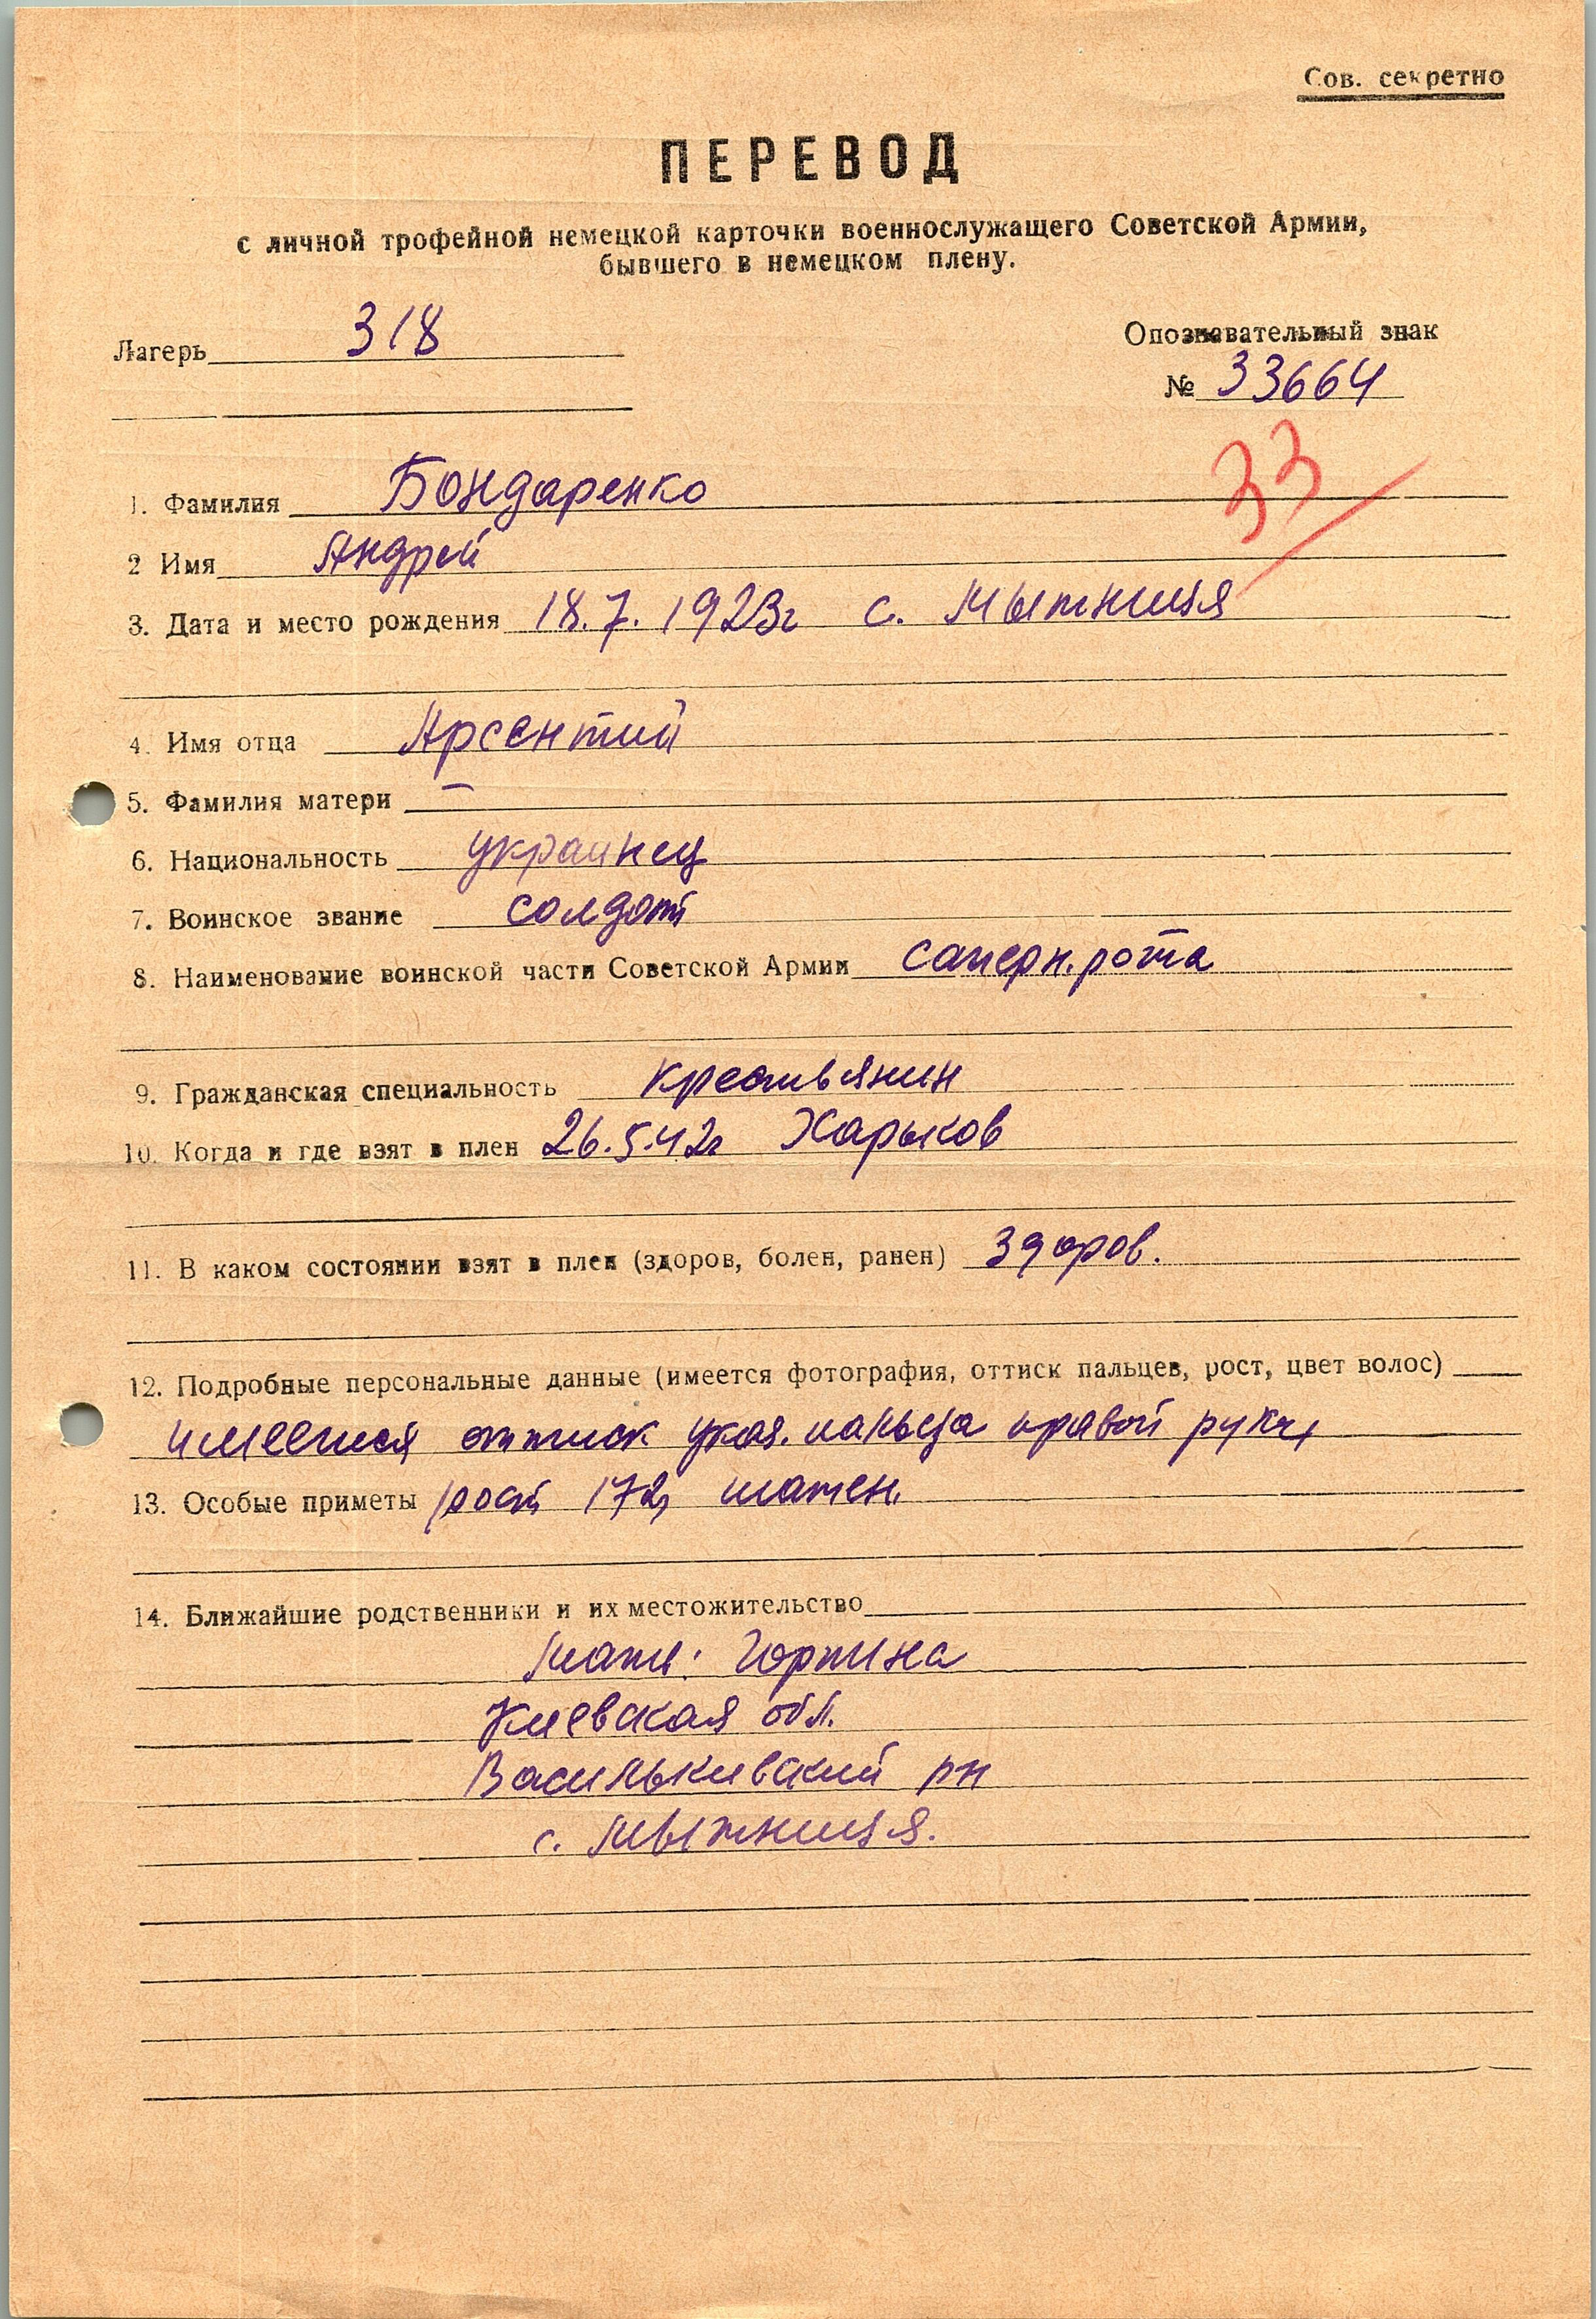 Сов. секретно
ПЕРЕВОД
с личной трофейной немецкой карточки военнослужащего Советской Армии,
бывшего в немецком плену.
Лагерь 318
Опознавательный знак
№ 33664
33
1. Фамилия Бондаренко
2 Имя Андрей
3. Дата и место рождения 18.7.1923г с. Мытница
4. Имя отца Арсентий
5. Фамилия матери —
6. Национальность украинец
7. Воинское звание солдат
8. Наименование воинской части Советской Армии саперн. рота
9. Гражданская специальность крестьянин
10. Когда и где взят в плен 26.5.42г Харьков
11. В каком состоянии взят в плен (здоров, болен, ранен) здоров.
12. Подробные персональные данные (имеется фотография, оттиск пальцев, рост, цвет волос)
имеется оттиск указ. пальца правой руки,
13. Особые приметы рост 172, шатен.
14. Ближайшие родственники и их местожительство
Мать: Горпина
Киевская обл.
Василькивский рн
с. Мытница.